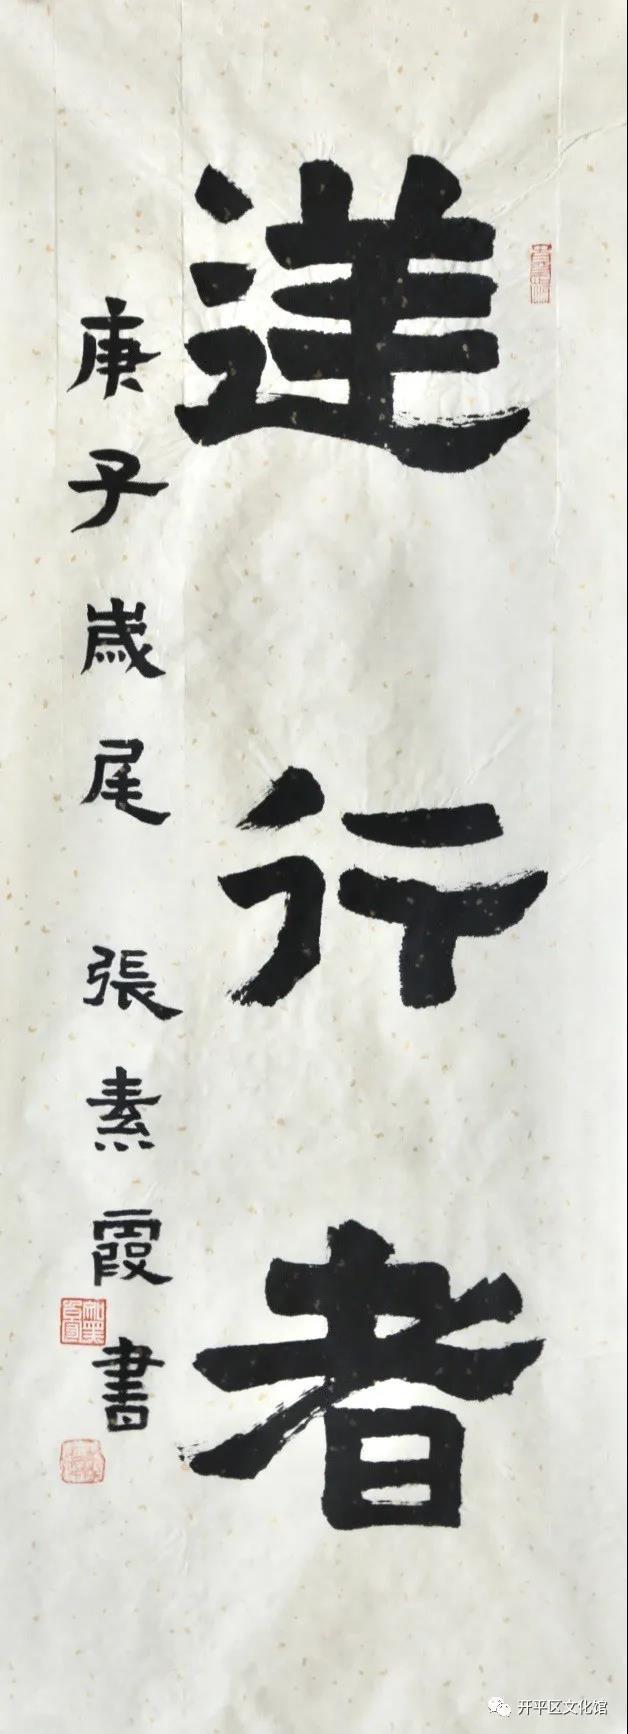 逆行者
庚子歲尾 張素霞書
开平区文化馆